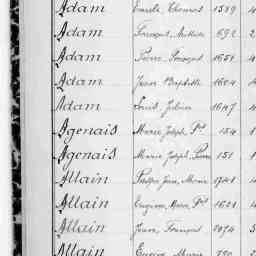 Adam Thomas 1589
Adam François, Mathieu 692 2
Adam Pierre, François 1651
Adam Jean Baptiste 1604
Adam Louis, Julien 1647 4
Agenais Marie Joseph 154 1
Agenais Marie Joseph, Pierre 151 1
Allain Jean, Marie 1741 4
Allain Eugène, Marie 1601 4
Allain Jean, François 2074 5
Allain Eugène, Marie 790 2